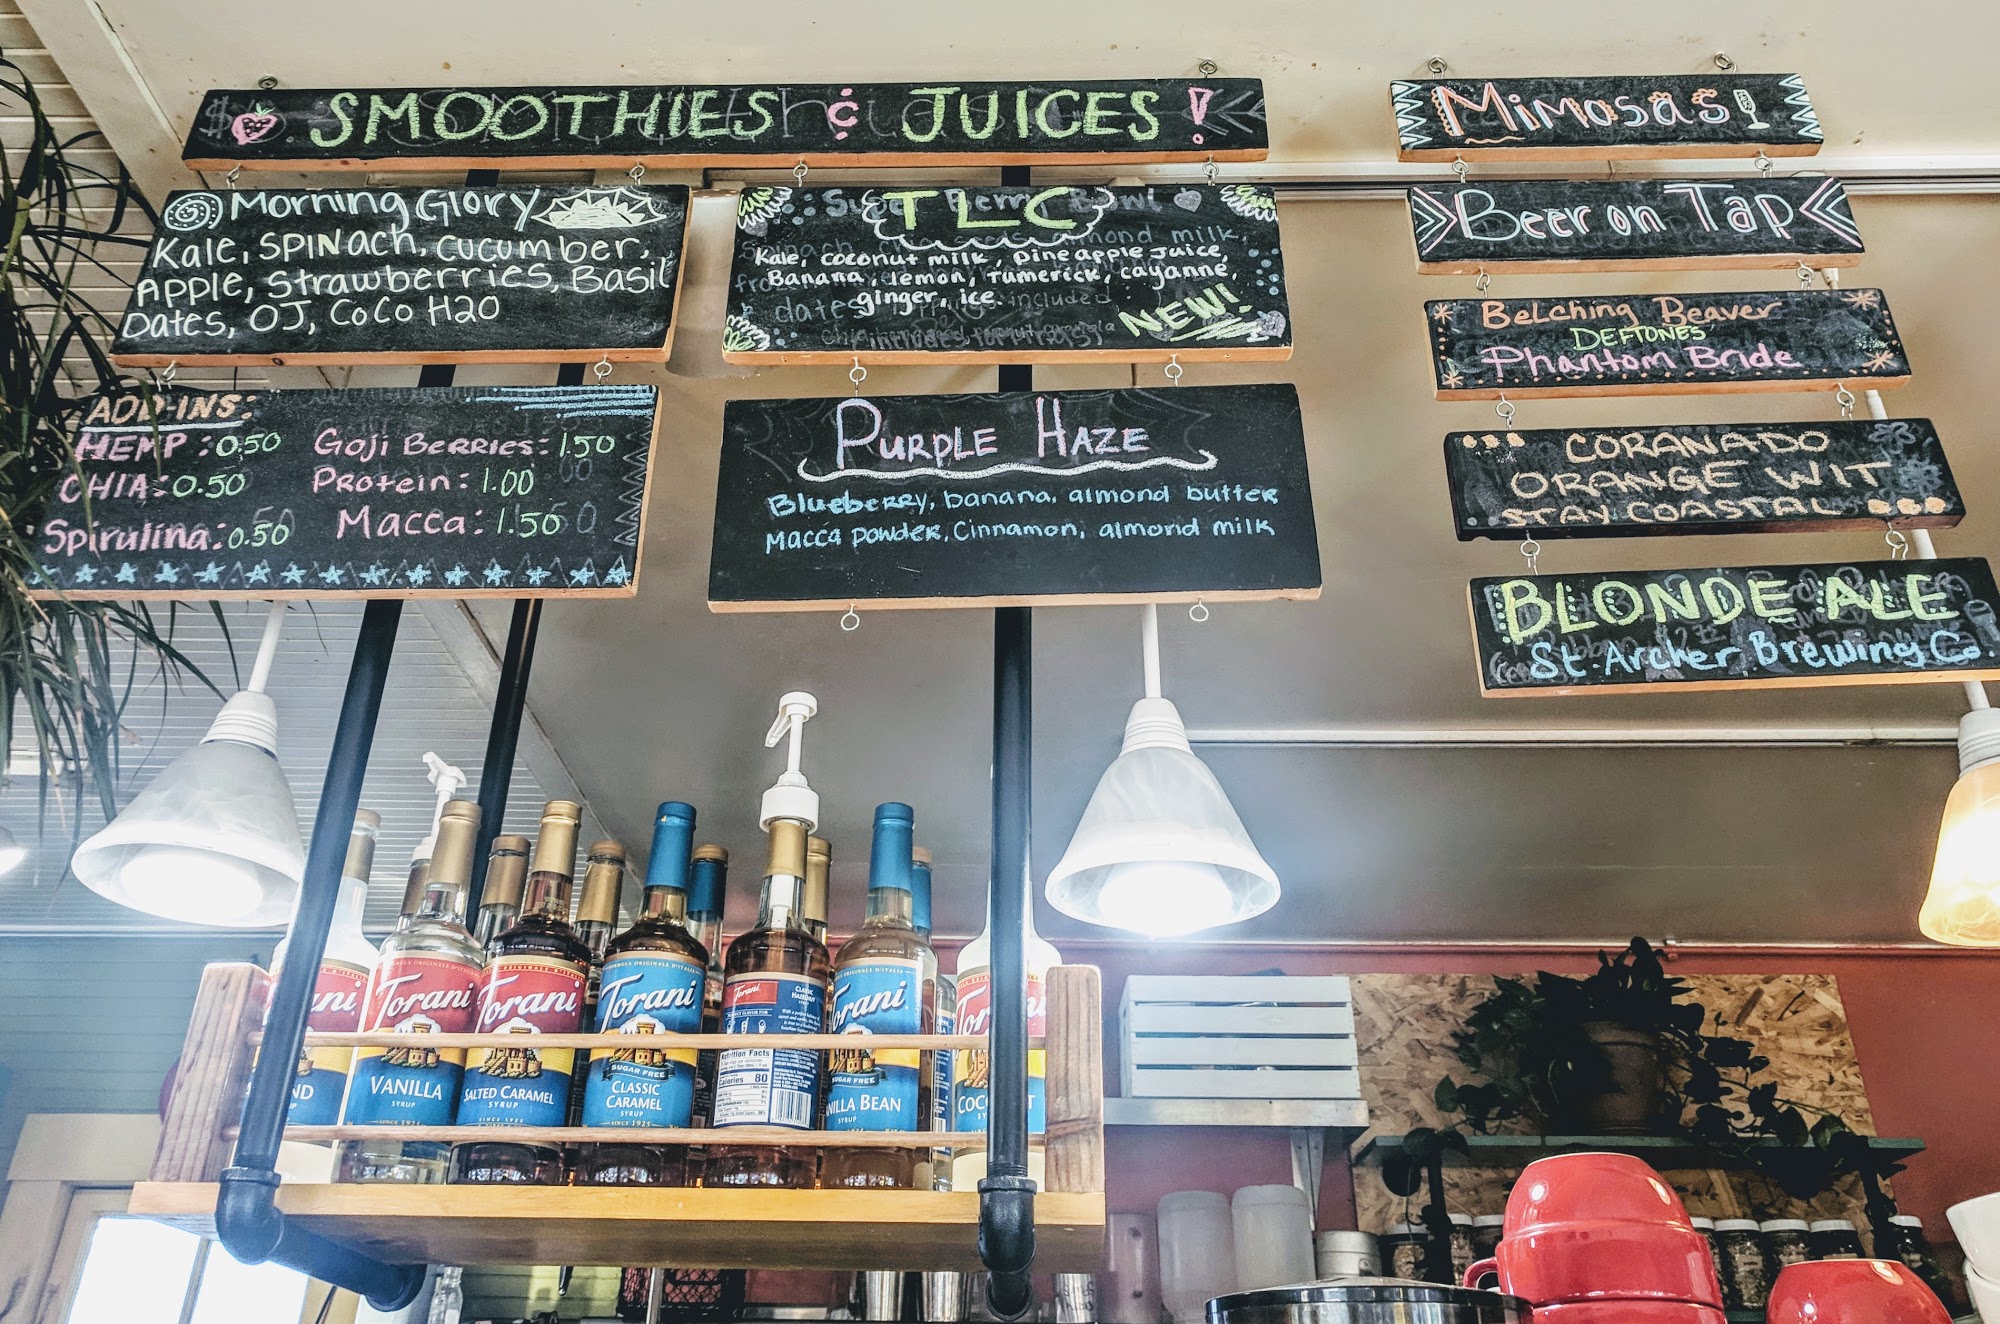 SMOOTHIES & JUICES!
Morning Glory
Kale, SPINach, cucumber,
Apple, Strawberries, Basil
Dates, OJ, CoCo H2O
ADD-INS:
HEMP: 0.50
CHIA: 0.50
Spirulina: 0.50
Goji Berries: 1.50
Protein: 1.00
Macca: 1.50
TLC
Kale, coconut milk, pineapple juice,
Banana, lemon, Tumerick, cayanne,
ginger, ice
NEW!
Purple Haze
Blueberry, banana, almond butter
Macca powder, Cinnamon, almond milk
Mimosas!
Beer on Tap
Belching Beaver
DEFTONES
Phantom Bride
CORANADO
ORANGE WIT
STAY COASTAL
BLONDE ALE
St. Archer Brewing Co.
Torani
VANILLA
SYRUP
Torani
SALTED CARAMEL
SYRUP
Torani
SUGAR FREE
CLASSIC
CARAMEL
SYRUP
SINCE 1925
Torani
CLASSIC
HAZELNUT
Nutrition Facts
Calories 80
Torani
SUGAR FREE
BEAN
SYRUP